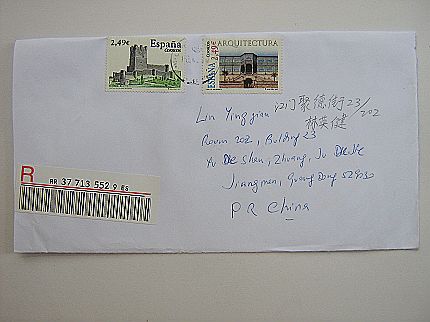 2,49€ España
CORREOS
ARQUITECTURA
ESPAÑA 2,49€
CORREOS
Lin Yingjian 江门聚德街23/202
林英健
Room 202, Building 23
Yu De Shan, Zhuang, Ju De Jie
Jiangmen, Guang Dong 529030
P R China
R
RR 37 713 552 9 ES